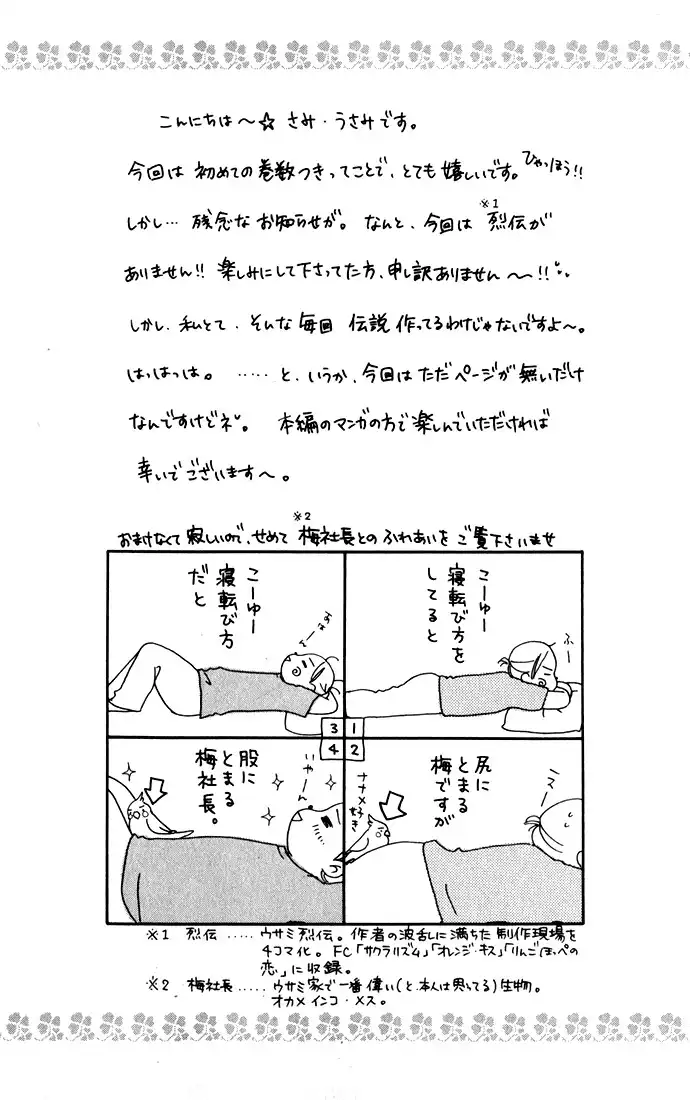 こんにちは～☆ さみ・うさみです。
今回は 初めての巻数つきってことで、とても嬉しいです。ひゃっほう!!
しかし… 残念な お知らせが。 なんと、今回は ※1 烈伝が
ありません!! 楽しみにして下さってた方、申し訳ありません～～!!
しかし、私とて、そんな毎回 伝説 作ってるわけじゃないですよ～。
はっはっは。 ……と、いうか、今回はただページが無いだけ
なんですけどネ。 本編のマンガの方で楽しんでいただければ
幸いでございます～。
おまけなくて寂しいので、せめて ※2 梅社長とのふれあいを ご覧下さいませ
1
こーゆー
寝転び方を
してると
ふー
2
尻に
とまる
梅ですが
ナナメ好き
3
こーゆー
寝転び方
だと
4
股に
とまる
梅社長。
いやーん
※1 烈伝 ‥‥‥ ウサミ烈伝。作者の波乱に満ちた制作現場を
4コマ化。 FC「サクラリズム」「オレンジ・キス」「りんごほっぺの
恋」に収録。
※2 梅社長‥‥‥ウサミ家で一番偉い(と、本人は思ってる)生物。
オカメインコ・メス。